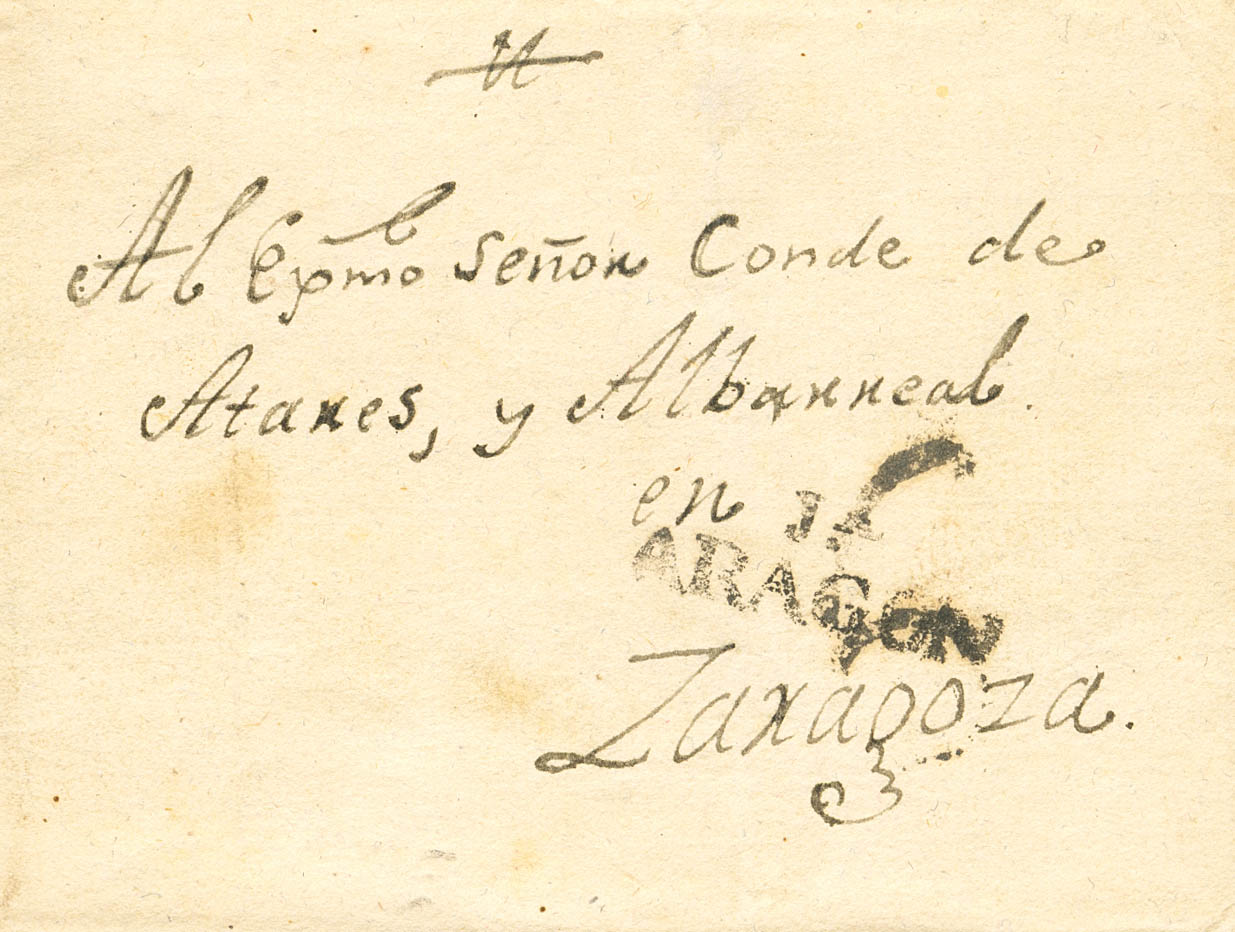 Al Exp̃mo Señor Conde de
Atares, y Albarreal.
en
ARAGON
Zaragoza.